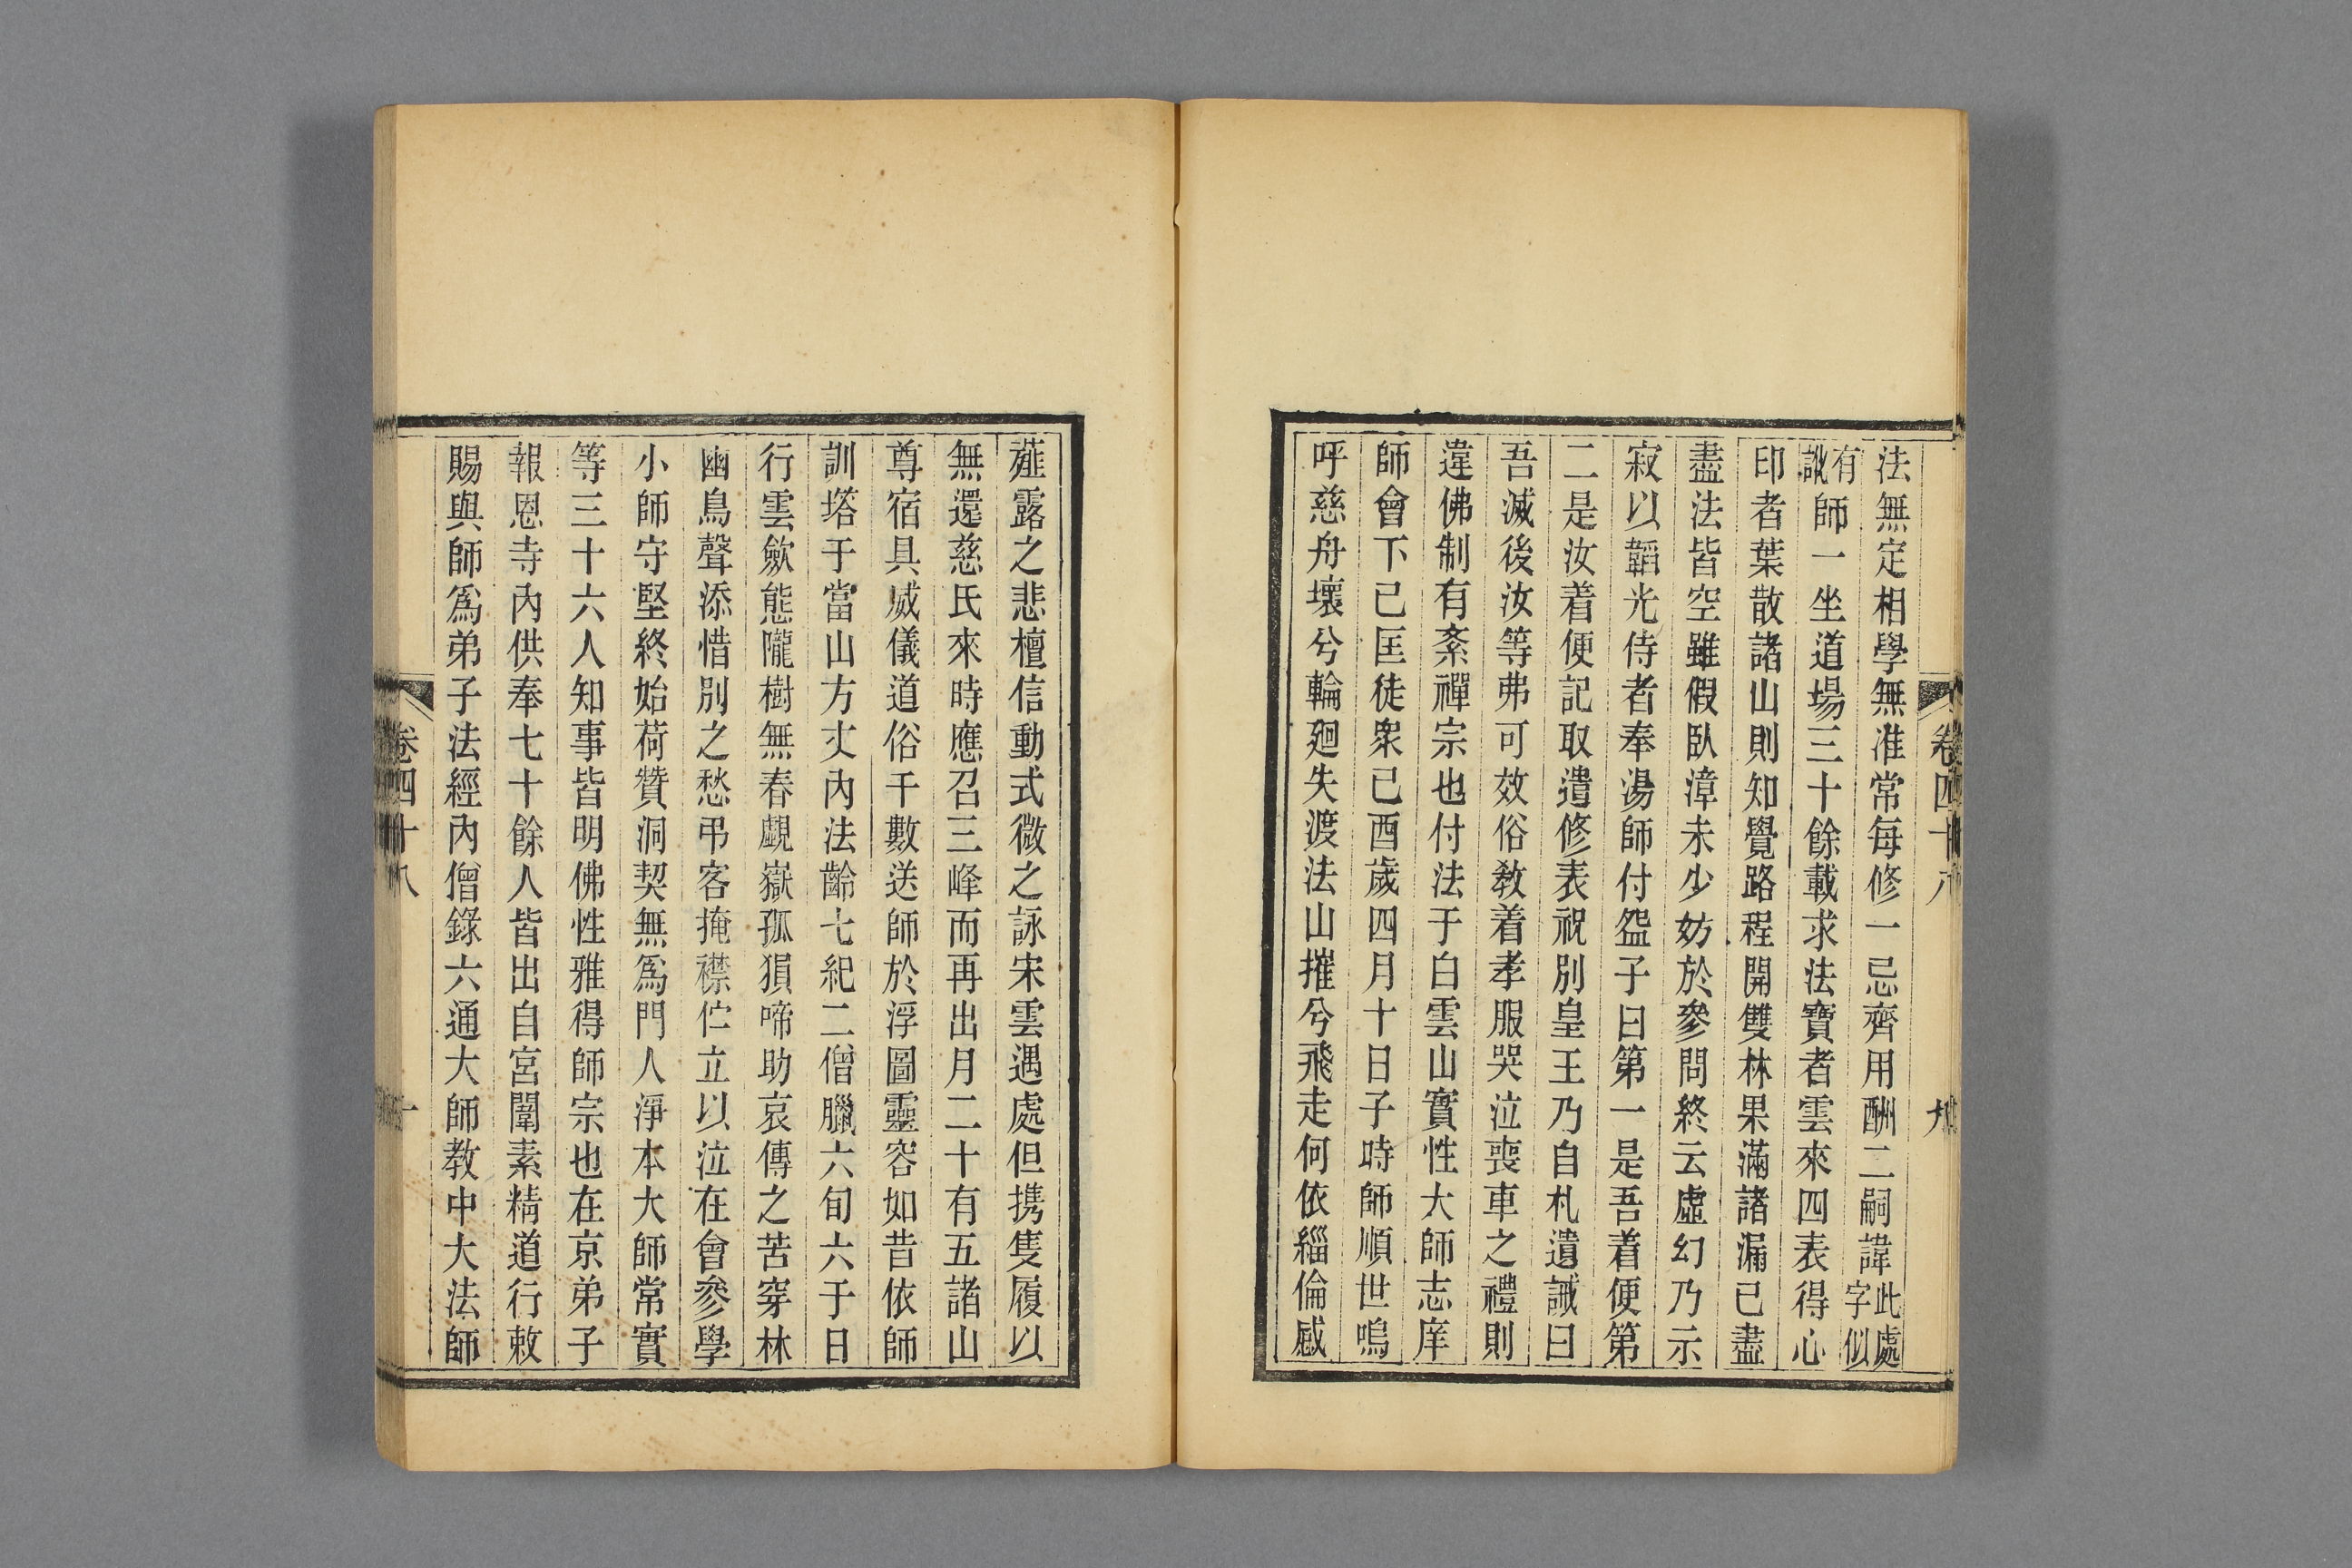 卷四十八
九
法無定相學無准常每修一忌齊用酬二嗣諱此處字似
有訛師一坐道場三十餘載求法寶者雲來四表得心
印者葉散諸山則知覺路程開雙林果滿諸漏已盡
盡法皆空雖假臥漳未少妨於參問終云虛幻乃示
寂以韜光侍者奉湯師付盌子曰第一是吾着便第
二是汝着便記取遺修表祝別皇王乃自札遺誡曰
吾滅後汝等弗可效俗教着孝服哭泣喪車之禮則
違佛制有紊禪宗也付法于白雲山實性大師志庠
師會下已匡徒衆已酉歲四月十日子時師順世嗚
呼慈舟壞兮輪廻失渡法山摧兮飛走何依緇倫感
薤露之悲檀信動式微之詠宋雲遇處但携隻履以
無還慈氏來時應召三峰而再出月二十有五諸山
尊宿具威儀道俗千數送師於浮圖靈容如昔依師
訓塔于當山方丈內法齡七紀二僧臘六旬六于日
行雲歛態隴樹無春覷嶽孤猿啼助哀傳之苦穿林
幽鳥聲添惜別之愁弔客掩襟伫立以泣在會參學
小師守堅終始荷贊洞契無爲門人淨本大師常實
等三十六人知事皆明佛性雅得師宗也在京弟子
報恩寺內供奉七十餘人皆出自宮闈素精道行敕
賜與師爲弟子法經內僧錄六通大師教中大法師
卷四十八
十